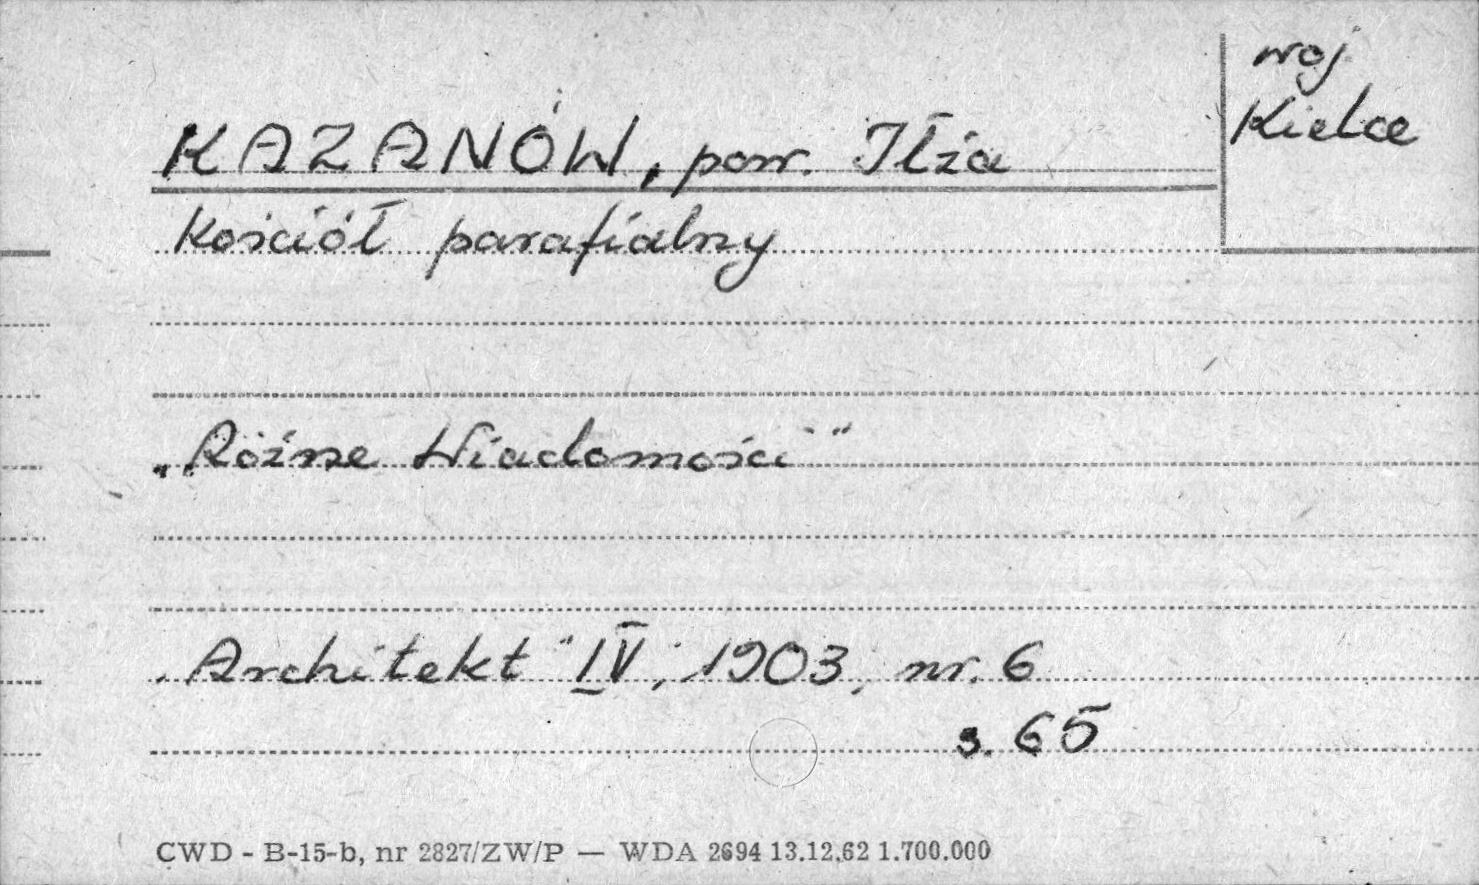 woj
Kielce
KAZANÓW, pow. Iłża
Kościół parafialny
„Różne Wiadomości"
„Architekt" IV, 1903, nr. 6
s. 65
CWD - B-15-b, nr 2827/ZW/P — WDA 2694 13.12.62 1.700.000